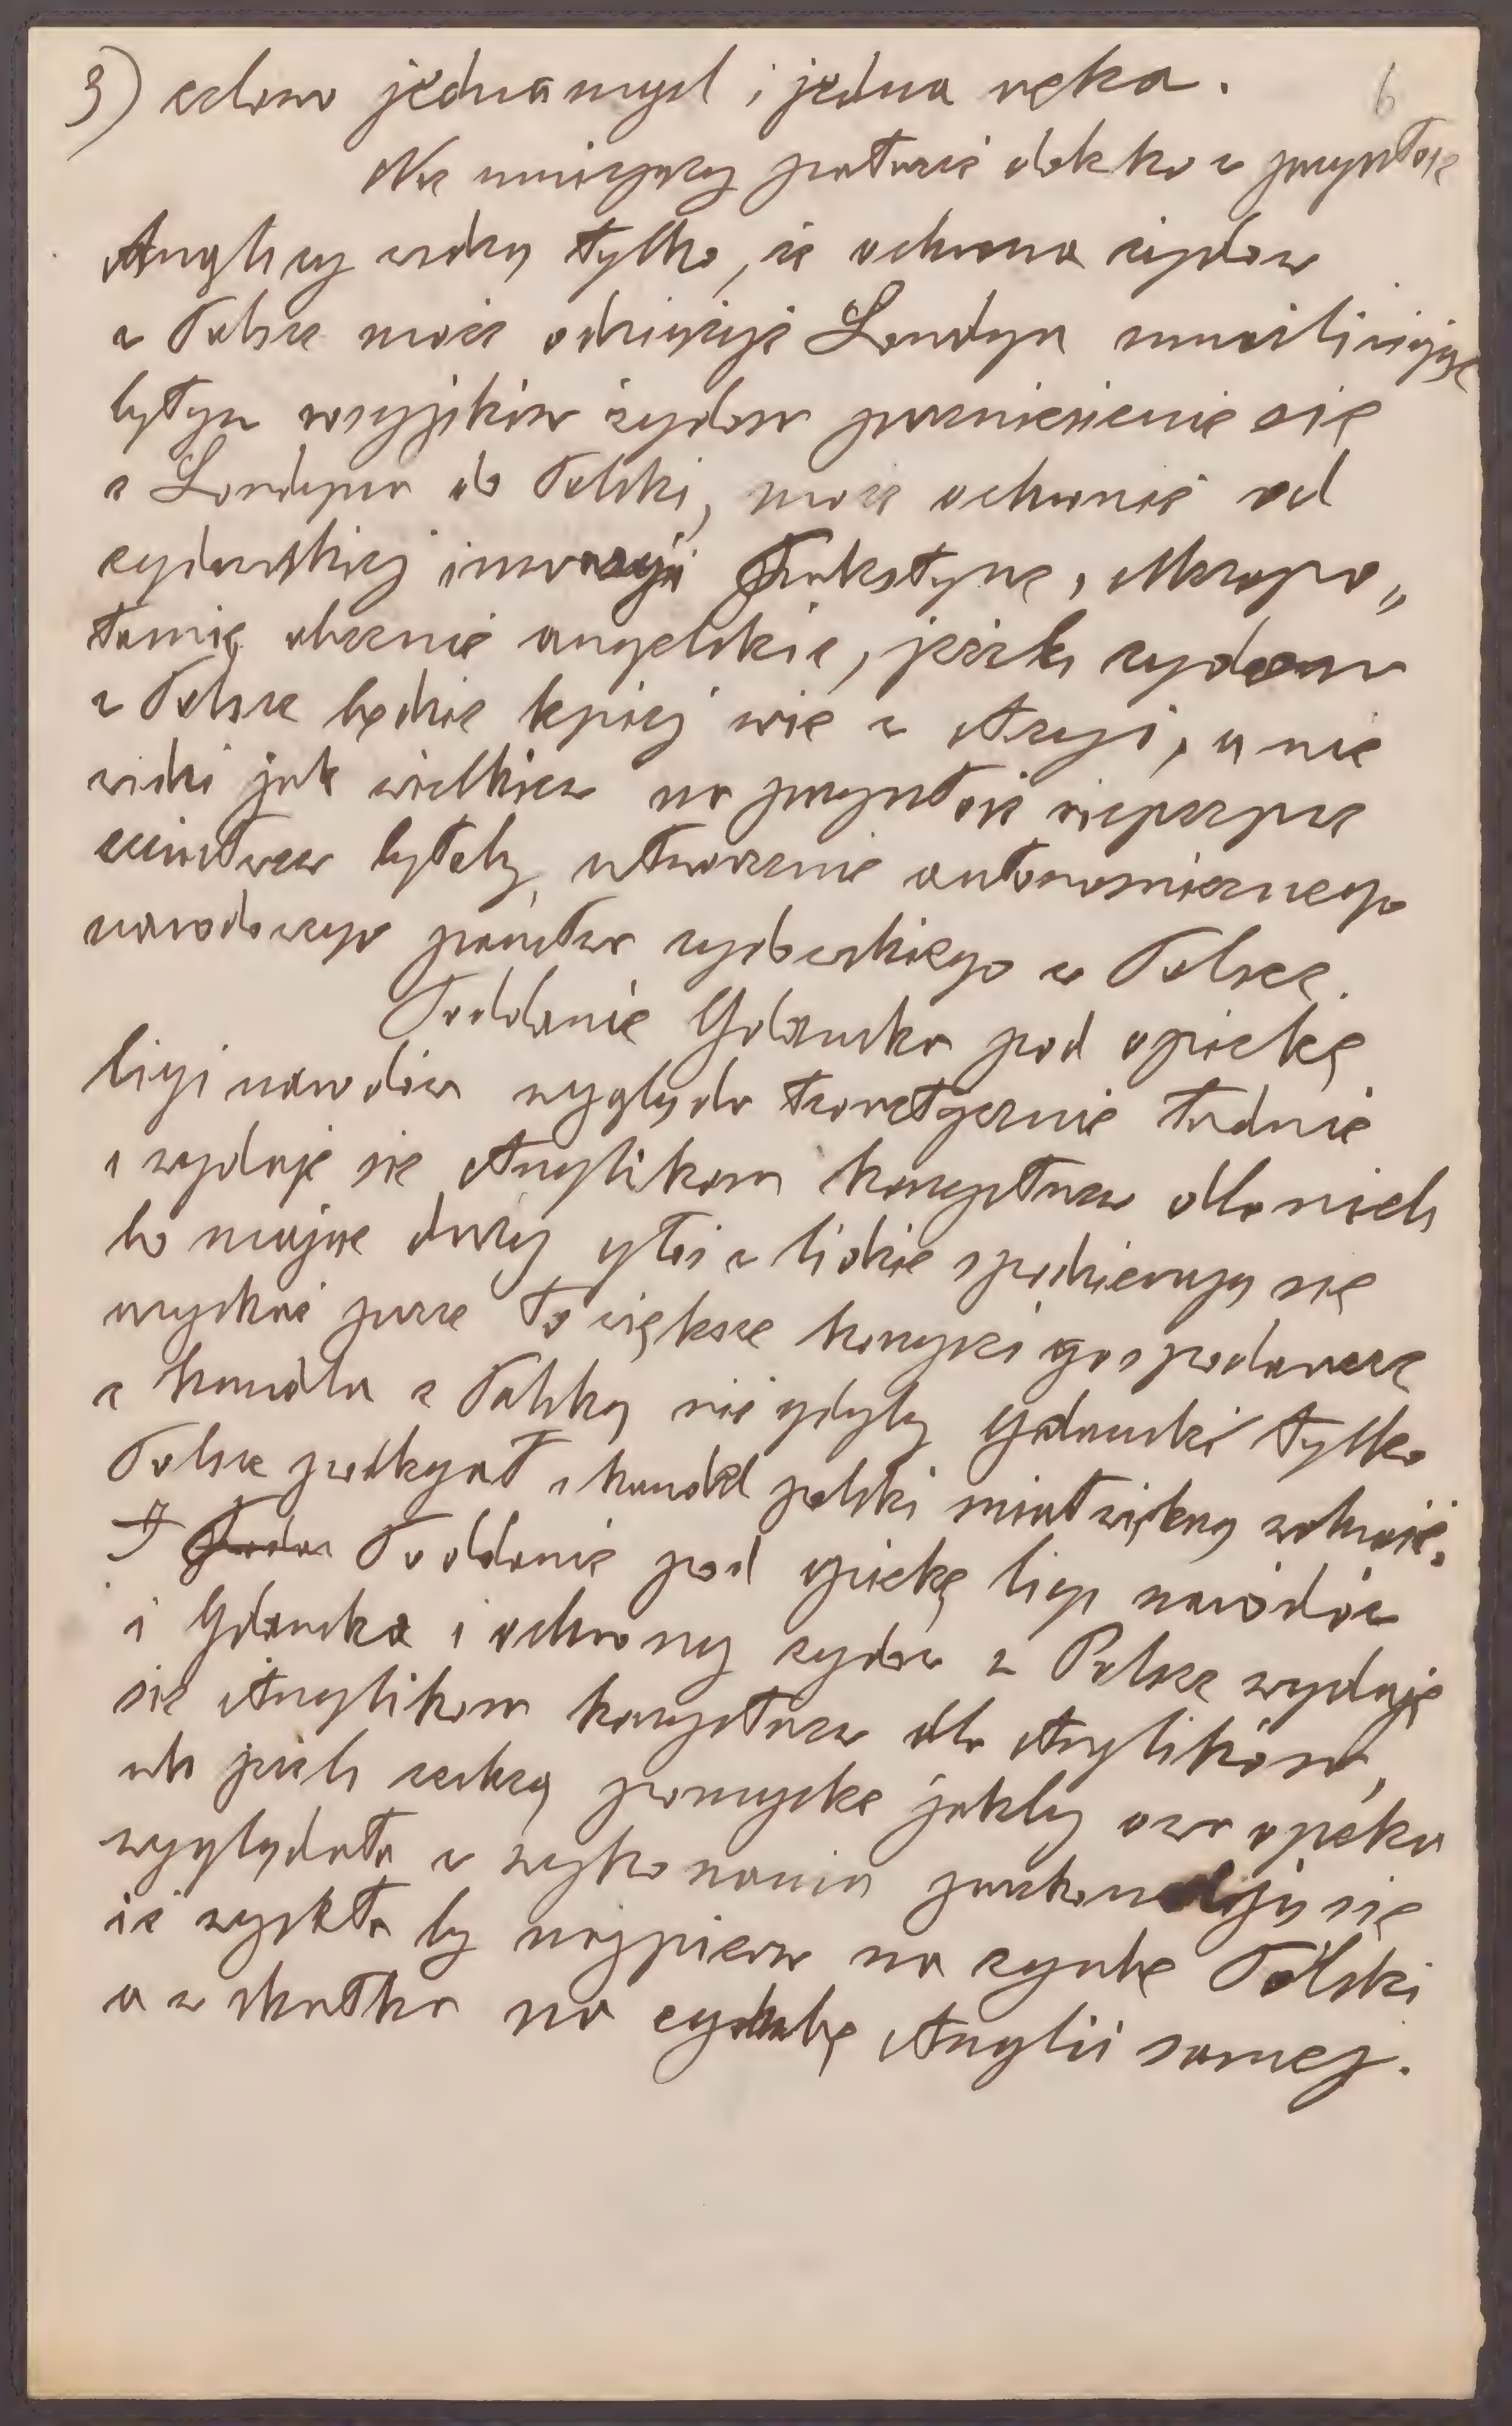 3) jedna myśl i jedna ręka.
6
Nie umiejący patrzeć daleko w przyszłość
Anglicy widzą tylko, że ochrona żydów
w Polsce może odciążyć Londyn umożliwiając
żydom przeniesienie się
z Londynu do Polski, może ochronić od
żydowskiej inwazyi Palestynę, Mezopo„
tamię obecnie angielskie, jeżeli żydom
w Polsce będzie lepiej niż w Azyi, a nie
widzi jak wielkiem na przyszłość niebezpie
czeństwem byłoby utworzenie autonomicznego
narodowego państwa żydowskiego w Polsce.
Poddanie Gdańska pod opiekę
ligi narodów wygląda teoretycznie ładnie
i wydaje się Anglikom korzystnem dla nich
bo mając duży głos w lidze spodziewają się
uzyskać przez to większe korzyści gospodarcze
z handlu z Polską niż gdyby Gdańsk tylko
Polsce podlegał i handel polski miał większą wolność.
Poddanie pod opiekę ligi narodów
i Gdańska i ochrony żydów w Polsce wydaje
się Anglikom korzystnem dla Anglików,
ale jeśli zechcą pomyśleć jakby owa opieka
wyglądała w wykonaniu przekonają się
iż wyszła by najpierw na zgubę Polski
a w skutku na zgubę Anglii samej.